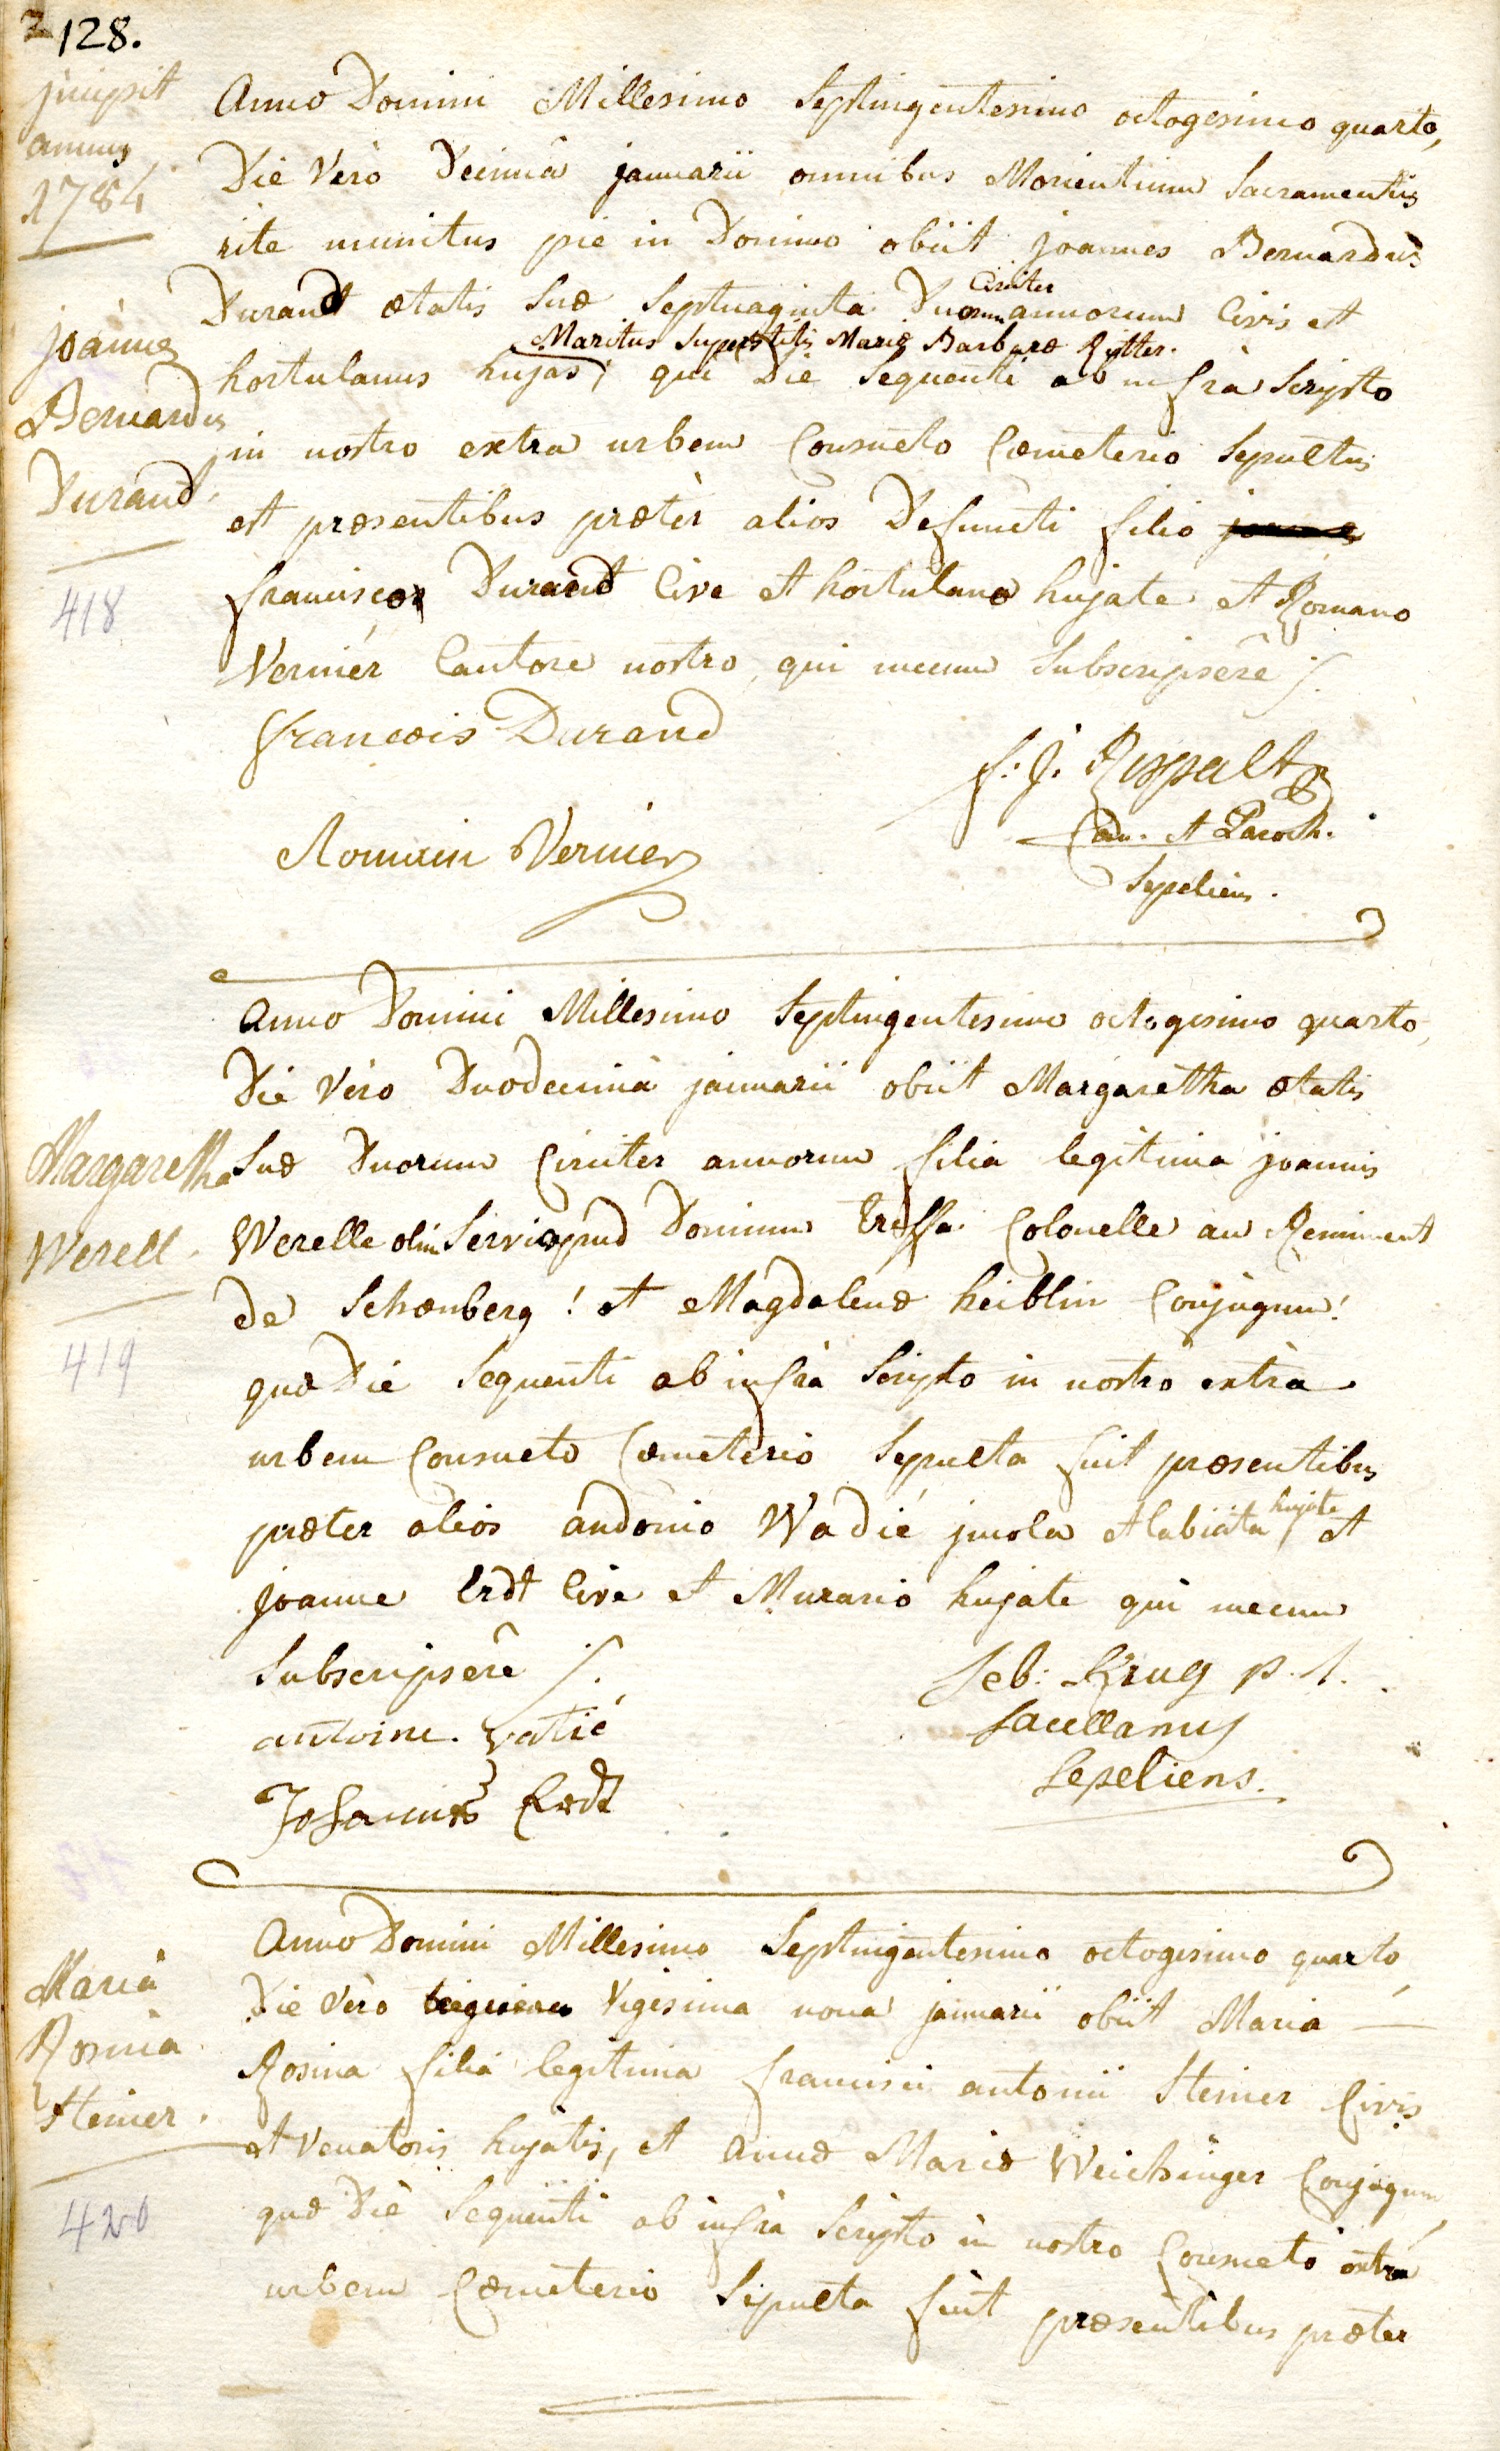 128.
jncipit
annus
1784
Anno Domini Millesimo Septingentesimo octogesimo quarto,
Die Verò Decimâ januarii omnibus Morientium Sacramentis
rite munitus pie in Domino obiit joannes Bernardus
Circiter
Durand ætatis Suæ Septuaginta Duorum annorum Civis et
Maritus Superstitis Mariæ Barbaræ Ritter.
hortulanus hujas, qui Die Sequenti ab infrà Scripto
in nostro extra urbem Consueto Cœmeterio Sepultus
est præsentibus præter alios Defuncti filio
francisco Durand Cive et hortulano hujate et Romano
Vernier Cantore nostro, qui mecum Subscripsêre ⁒
joannes
Bernardus
Durand.
418
francois Durand
f: J. Rispalt
Can. et Paroch.
Romain Vernier
Sepeliens.
Anno Domini Millesimo Septingentesimo octogesimo quarto,
Die Vero Duodecimâ januarii obiit Margaretha ætatis
Suæ Duorum Circiter annorum filia legitima joannis
Werelle olim Servi apud Dominum Colonelle au Regiment
de Schœnberg! et Magdalenæ heiblin Conjugum!
quæ Die Sequenti ab infrà Scripto in nostro extrà
urbem Consueto Cœmeterio Sepulta fuit præsentibus
hujate
præter alios andonio Wadié jncola et et
joanne Erdt Cive et Murario hujate qui mecum
Subscripsêre ⁒
Margaretha
Werell.
419
Seb: Krug p. t.
Sacellanus
Sepeliens.
antoine vatié
Johannes Erdt
Anno Domini Millesimo Septingentesimo octogesimo quarto,
Die Verò Vigesima nona januarii obiit Maria —
Rosina filia legitima francisci antonii Steiner Civis
et Venatoris hujatis, et Annæ Mariæ Weichinger Conjugum,
quæ Die Sequenti ab infrà Scripto in nostro Consueto extrà
urbem Cœmeterio Sepulta fuit præsentibus præter
Maria
Rosina
Steiner.
420